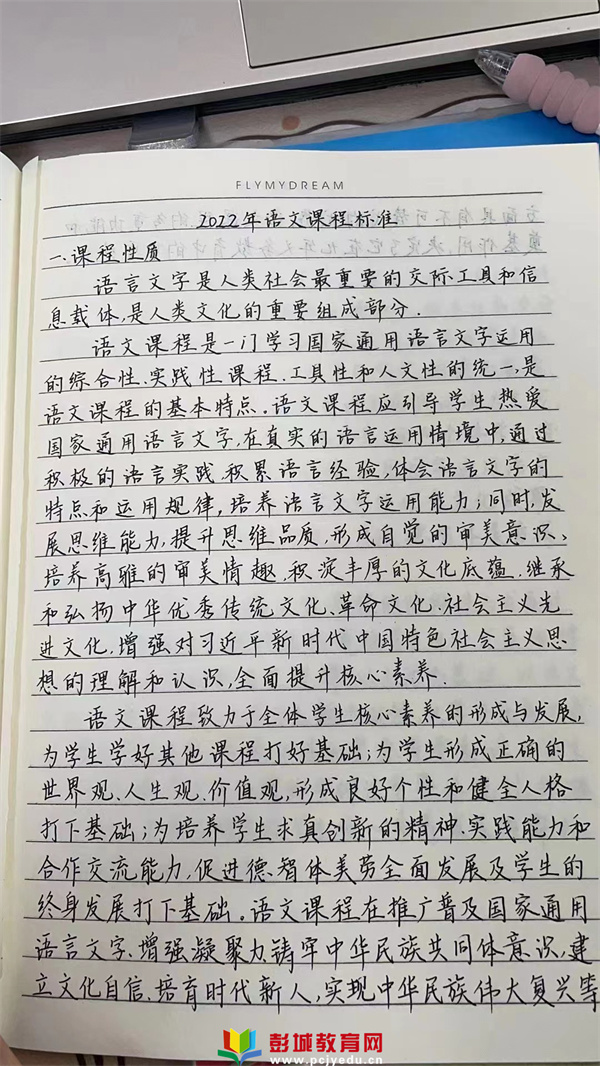 FLYMYDREAM
2022年语文课程标准
一.课程性质
语言文字是人类社会最重要的交际工具和信
息载体,是人类文化的重要组成部分.
语文课程是一门学习国家通用语言文字运用
的综合性.实践性课程.工具性和人文性的统一,是
语文课程的基本特点。语文课程应引导学生热爱
国家通用语言文字,在真实的语言运用情境中,通过
积极的语言实践,积累语言经验,体会语言文字的
特点和运用规律,培养语言文字运用能力;同时,发
展思维能力,提升思维品质,形成自觉的审美意识、
培养高雅的审美情趣.积淀丰厚的文化底蕴.继承
和弘扬中华优秀传统文化、革命文化.社会主义先
进文化.增强对习近平新时代中国特色社会主义思
想的理解和认识,全面提升核心素养.
语文课程致力于全体学生核心素养的形成与发展,
为学生学好其他课程打好基础;为学生形成正确的
世界观、人生观.价值观,形成良好个性和健全人格
打下基础;为培养学生求真创新的精神.实践能力和
合作交流能力,促进德.智体美劳全面发展及学生的
终身发展打下基础。语文课程在推广普及国家通用
语言文字、增强凝聚力.铸牢中华民族共同体意识,建
立文化自信.培育时代新人,实现中华民族伟大复兴等
彭城教育网
www.pcjyedu.cn